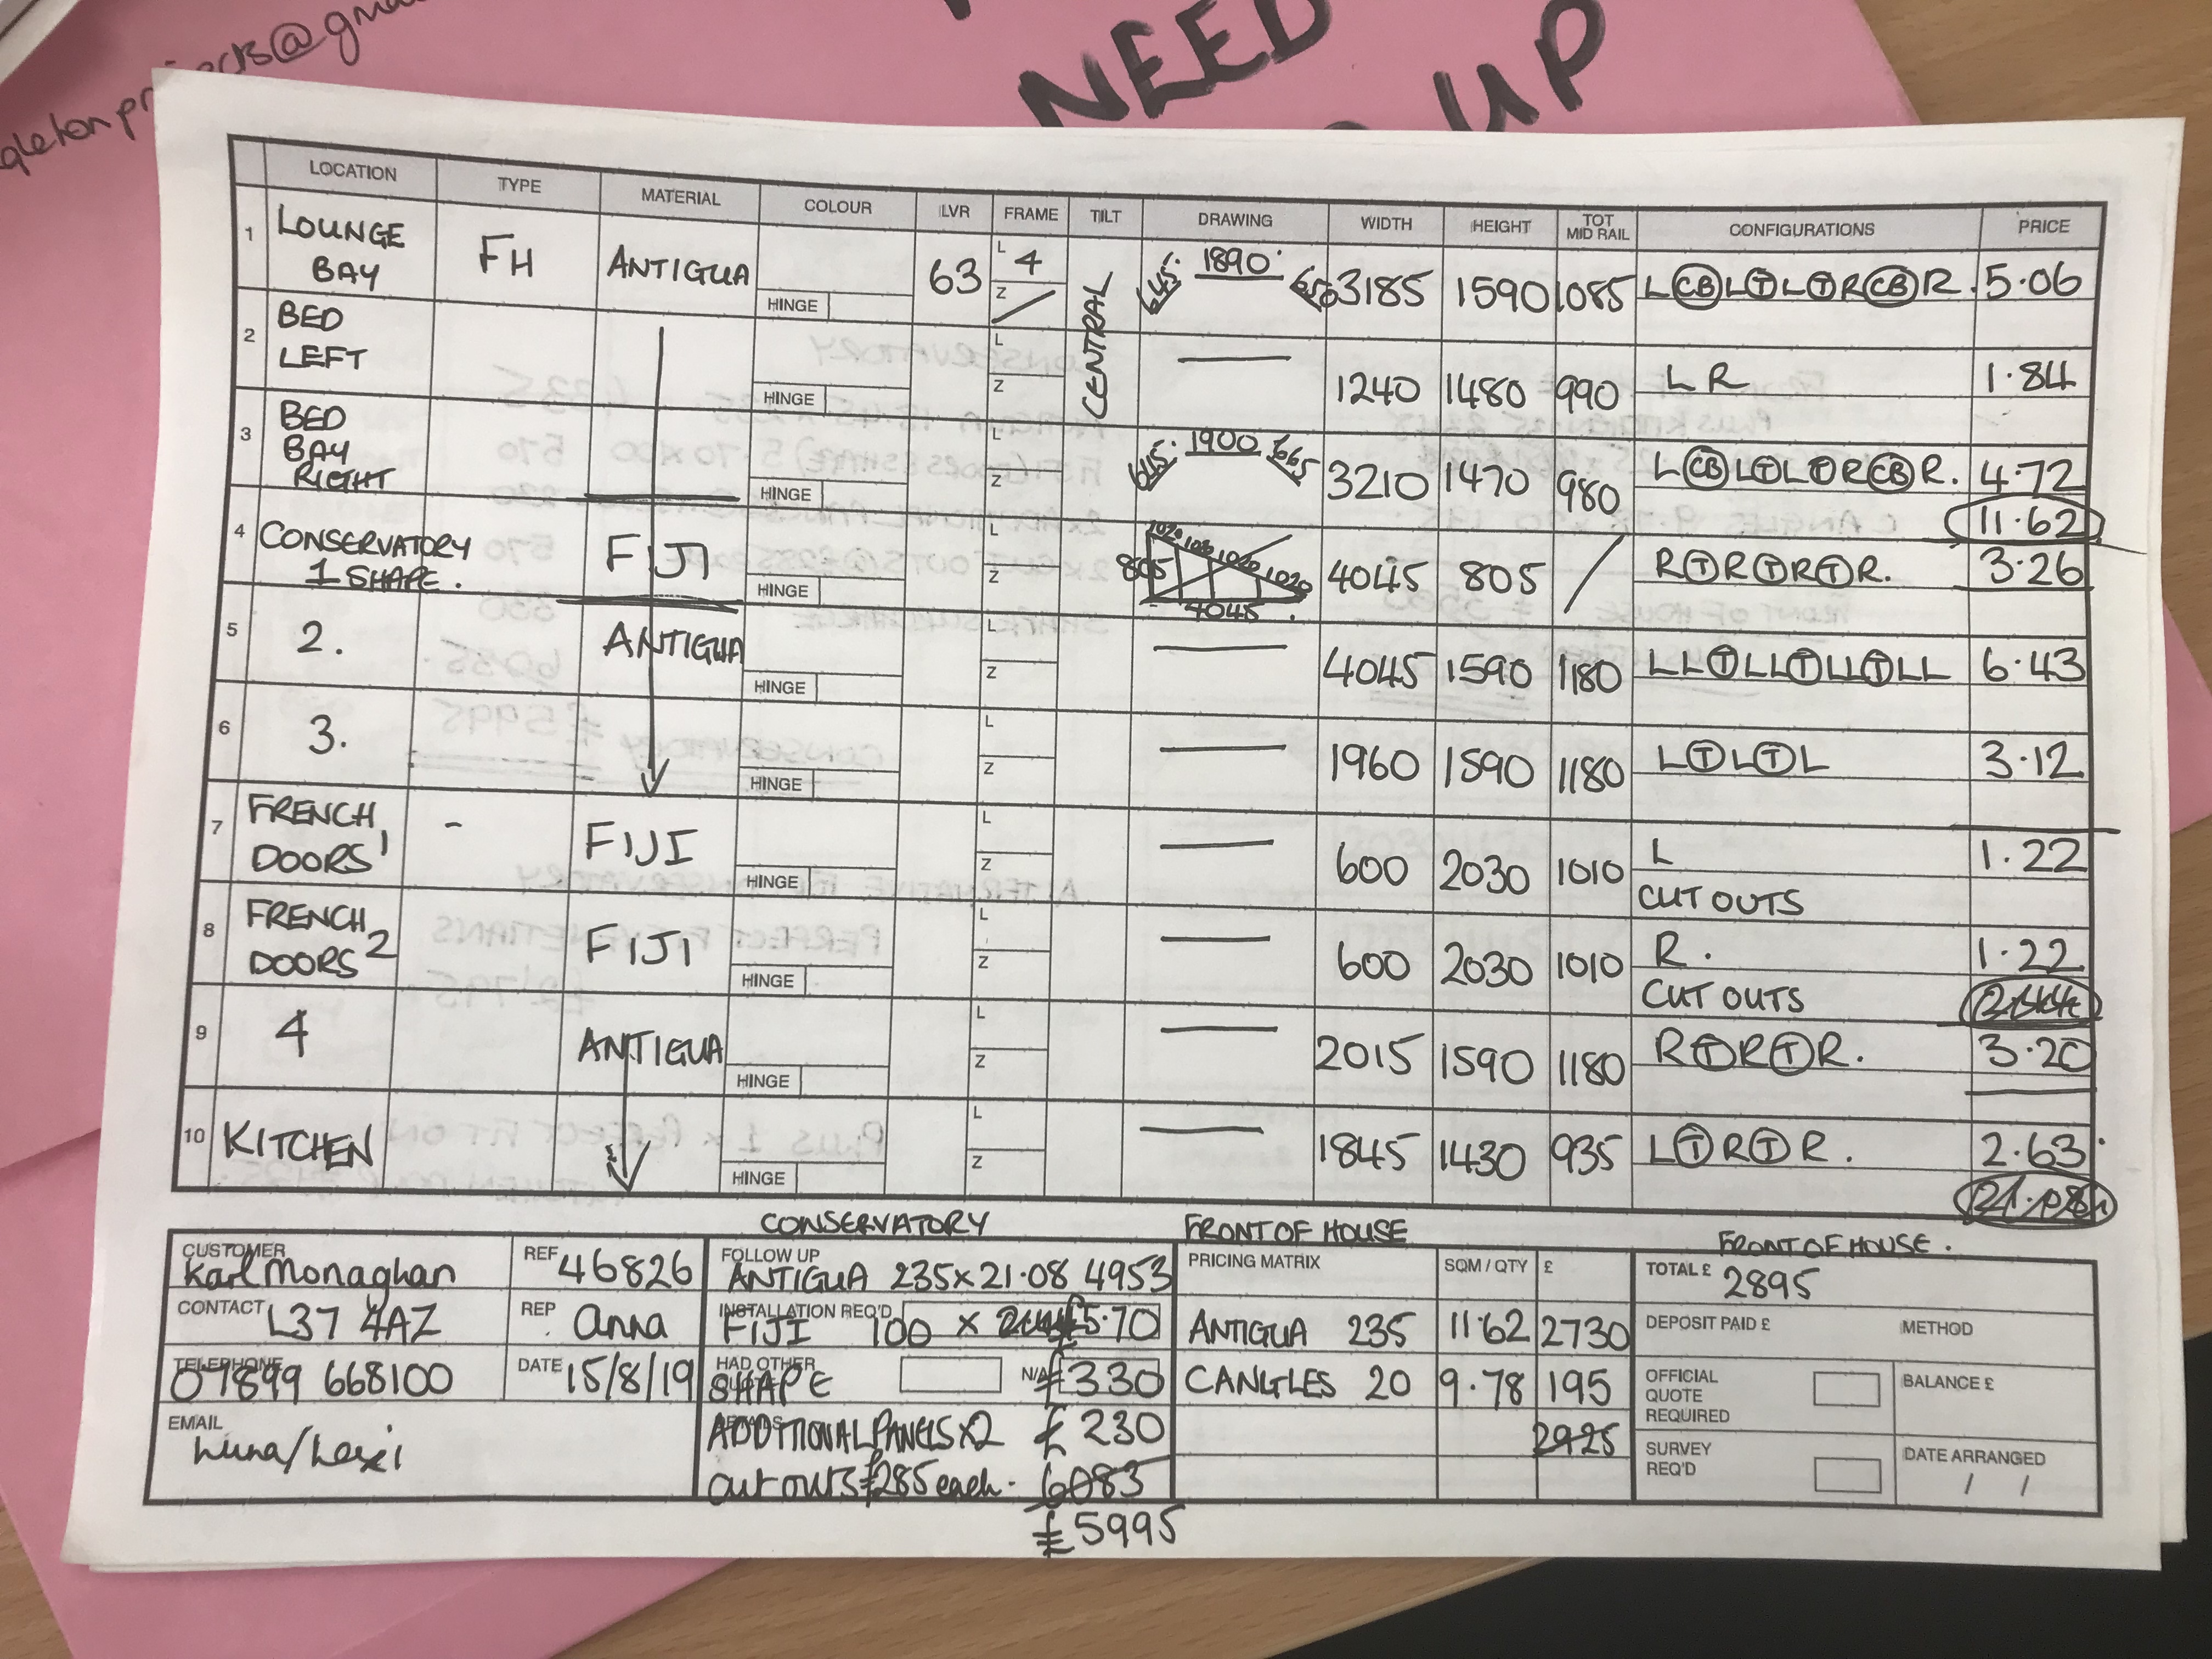 NEED
UP
LOCATION TYPE MATERIAL COLOUR LVR FRAME TILT DRAWING WIDTH HEIGHT TOT MID RAIL CONFIGURATIONS PRICE
1 LOUNGE BAY FH ANTIGUA HINGE 63 L 4 Z CENTRAL 645 1890 650 3185 1590 1085 L CB L T L T R CB R. 5.06
2 BED LEFT HINGE L Z 1240 1480 990 L R 1.84
3 BED BAY RIGHT HINGE L Z 645 1900 665 3210 1470 980 L CB L T L T R CB R. 4.72
11.62
4 CONSERVATORY 1 SHAPE. FIJI HINGE L Z 805 1020 1020 1020 1020 4045 4045 805 R T R T R T R. 3.26
5 2. ANTIGUA HINGE L Z 4045 1590 1180 L L T L L T L L T L L 6.43
6 3. HINGE L Z 1960 1590 1180 L T L T L 3.12
7 FRENCH DOORS 1 - FIJI HINGE L Z 600 2030 1010 L CUT OUTS 1.22
8 FRENCH DOORS 2 FIJI HINGE L Z 600 2030 1010 R. CUT OUTS 1.22
9 4 ANTIGUA HINGE L Z 2015 1590 1180 R T R T R. 3.20
10 KITCHEN HINGE L Z 1845 1430 935 L T R T R. 2.63
CONSERVATORY FRONT OF HOUSE FRONT OF HOUSE.
CUSTOMER Karl Monaghan REF 46826 FOLLOW UP ANTIGUA 235 x 21.08 4953 PRICING MATRIX SQM / QTY £ TOTAL £ 2895
CONTACT L37 4AZ REP Anna INSTALLATION REQ'D FIJI 100 x 5.70 ANTIGUA 235 11.62 2730 DEPOSIT PAID £ METHOD
TELEPHONE 07899 668100 DATE 15/8/19 HAD OTHER SHAPE N/A £330 C ANGLES 20 9.78 195 OFFICIAL QUOTE REQUIRED BALANCE £
EMAIL ADDITIONAL PANELS X2 £ 230 2925 SURVEY REQ'D DATE ARRANGED / /
cut outs £285 each. 6083
£5995